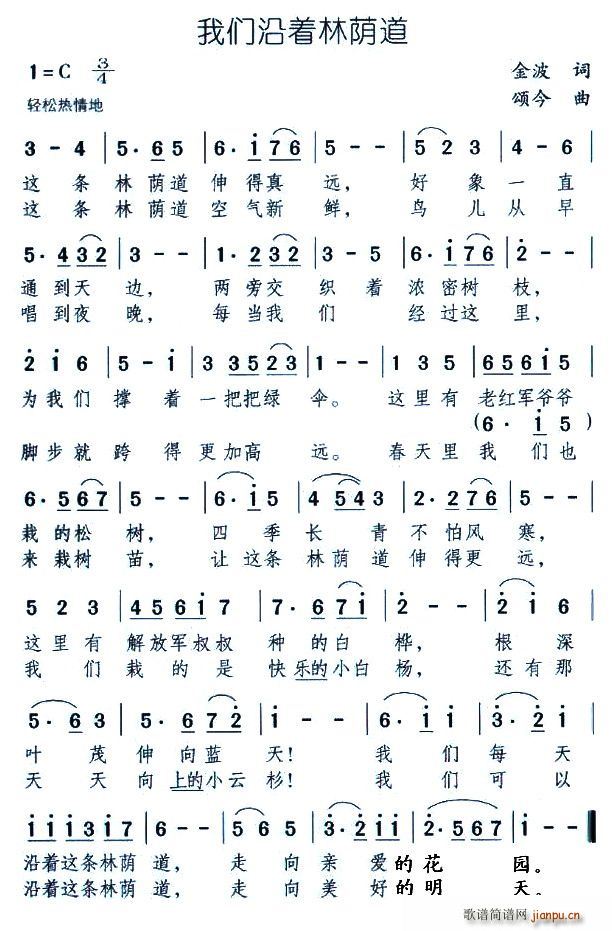 我们沿着林荫道
1=C 3/4 金波 词
轻松热情地 颂今 曲
3 - 4 | 5· 6 5 | 6· i 7 6 | 5 - - | 5 2 3 | 4 - 6 |
这 条 林 荫 道 伸 得 真 远, 好 象 一 直
这 条 林 荫 道 空 气 新 鲜, 鸟 儿 从 早
5· 4 3 2 | 3 - - | 1· 2 3 2 | 3 - 5 | 6· i 7 6 | 2 - - |
通 到 天 边, 两 旁 交 织 着 浓 密 树 枝,
唱 到 夜 晚, 每 当 我 们 经 过 这 里,
2 i 6 | 5 - i | 3 3 5 2 3 | 1 - - | 1 3 5 | 6 5 6 i 5 |
为 我 们 撑 着 一 把 把 绿 伞。 这 里 有 老 红 军 爷 爷
(6· i 5)
脚 步 就 跨 得 更 加 高 远。 春 天 里 我 们 也
6· 5 6 7 | 5 - - | 6· i 5 | 4 5 4 3 | 2· 2 7 6 | 5 - - |
栽 的 松 树, 四 季 长 青 不 怕 风 寒,
来 栽 树 苗, 让 这 条 林 荫 道 伸 得 更 远,
5 2 3 | 4 5 6 i | 7· 6 7 i | 2 - - | 2 - - | 2 i 6 |
这 里 有 解 放 军 叔 叔 种 的 白 桦, 根 深
我 们 栽 的 是 快 乐 的 小 白 杨, 还 有 那
5· 6 3 | 5· 5 6 7 2 | i - - | i - - | 6· i i | 3· 2 i |
叶 茂 伸 向 蓝 天! 我 们 每 天
天 天 向 上 的 小 云 杉! 我 们 可 以
i i i 3 i 7 | 6 - - | 5 6 5 | 3· 2 i i | 2· 5 6 7 | i - - ‖
沿 着 这 条 林 荫 道, 走 向 亲 爱 的 花 园。
沿 着 这 条 林 荫 道, 走 向 美 好 的 明 天。
歌谱简谱网
jianpu.cn